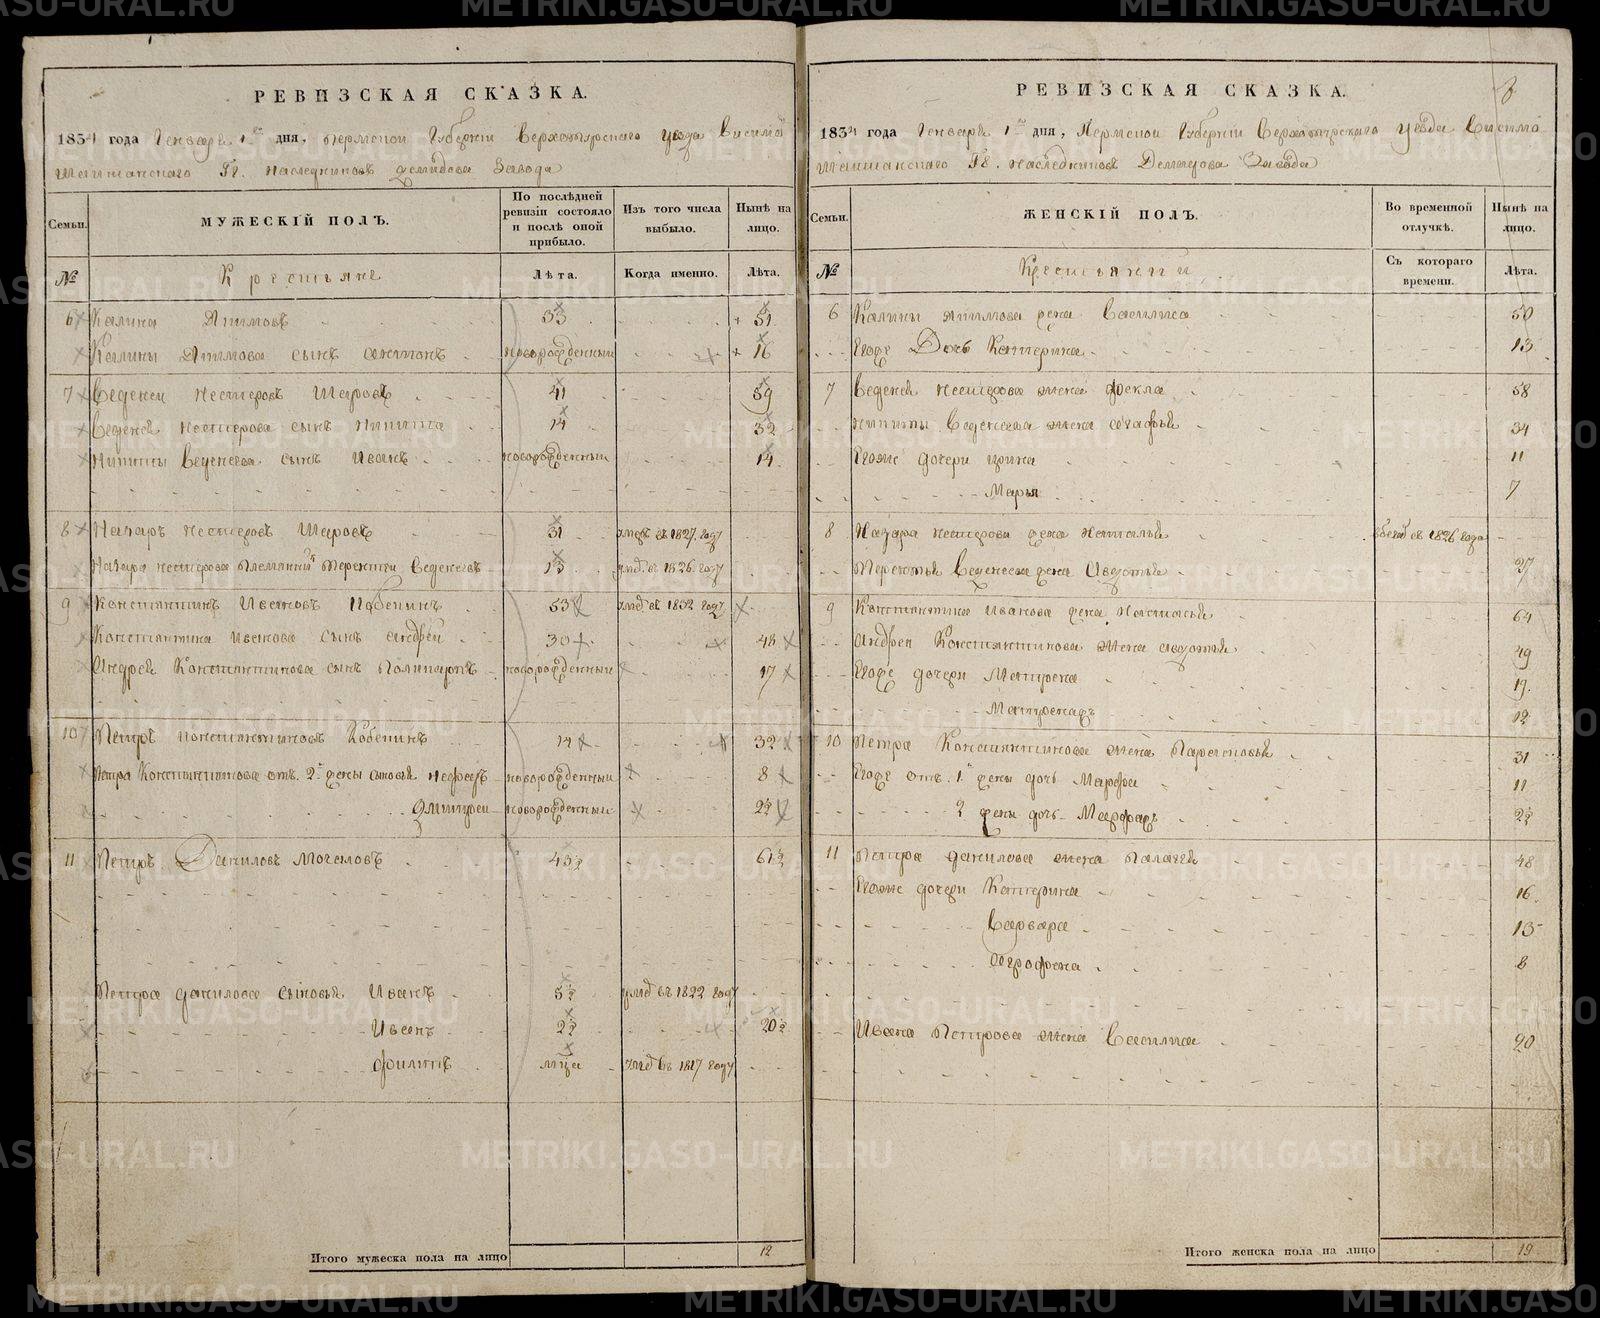 РЕВИЗСКАЯ СКАЗКА.
1834 года Генваря 1го дня, Пермской Губернїи Верхотурскаго уезда Висимо
Шайтанскаго Гг. наследниковъ Демидова Завода
Семьи. МУЖЕСКІЙ ПОЛЪ. По послѣдней ревизіи состояло и послѣ оной прибыло. Изъ того числа выбыло. Нынѣ на лицо.
№ Крестьяне Лѣта. Когда именно. Лѣта.
6 Калина Акимовъ 33 51
Калины Акимова сынъ Антонъ новорожденный 16
7 Веденей Нестеровъ Шаровъ 41 59
Веденея Нестерова сынъ Никита 14 32
Никиты Веденеева сынъ Иванъ новорожденный 14
8 Назаръ Нестеровъ Шаровъ 31 умеръ въ 1827 году
Назара Нестерова племянникъ Терентей Веденеевъ 13 умеръ въ 1826 году
9 Константинъ Ивановъ Кобенинъ 53 умеръ въ 1832 году
Константина Иванова сынъ Андрей 30 48
Андрея Константинова сынъ Поликарпъ новорожденный 17
10 Петръ Константиновъ Кобенинъ 14 32
Петра Константинова отъ 2й жены сыновья новорожденный 8
Дмитрей новорожденный 2½
11 Петръ Даниловъ Мочаловъ 43½ 61½
Петра Данилова сыновья Иванъ 5½ умеръ въ 1822 году
Иванъ 2½ 20½
Филипъ умеръ въ 1817 году
Итого мужеска пола на лицо 12
РЕВИЗСКАЯ СКАЗКА.
1834 года Генваря 1го дня, Пермской Губернїи Верхотурскаго уезда Висимо
Шайтанскаго Гг. наследниковъ Демидова Завода
Семьи. ЖЕНСКІЙ ПОЛЪ. Во временной отлучкѣ. Нынѣ на лицо.
№ Съ котораго времени. Лѣта.
6 Калины Акимова жена Василиса 50
Егоже Дочь Катерина 13
7 Веденея Нестерова жена Фекла 58
Никиты Веденеева жена 34
Егоже дочери Ирина 11
Марья 7
8 Назара Нестерова жена Наталья въ 1826 года
Терентья Веденеева жена Авдотья 27
9 Константина Иванова жена Настасья 64
Андрея Константинова жена Авдотья 49
Егоже дочери Матрена 19
Матрена 2я 12
10 Петра Константинова жена Парасковья 31
Егоже отъ 1й жены дочь Марфа 11
2 жены дочь Марфа 2½
11 Петра Данилова жена Палагея 48
Егоже дочери Катерина 16
Варвара 13
Агрофена 8
Ивана Петрова жена Василиса 20
Итого женска пола на лицо 19
METRIKI.GASO-URAL.RU